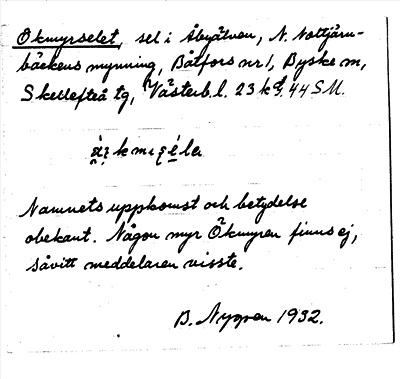 Ökmyrselet, sel i Åbyälven, N. Nottjärn-
bäckens mynning, Båtfors nr 1, Byske sn,
Skellefteå tg, Västerb. l. 23 k d. 44 SM.
Namnets uppkomst och betydelse
obekant. Någon myr Ökmyren finns ej,
såvitt meddelaren visste.
B. Nygren 1932.